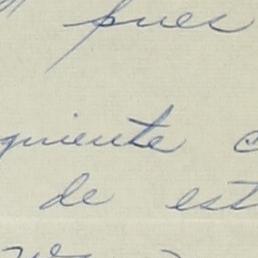 pues
guiente
de est